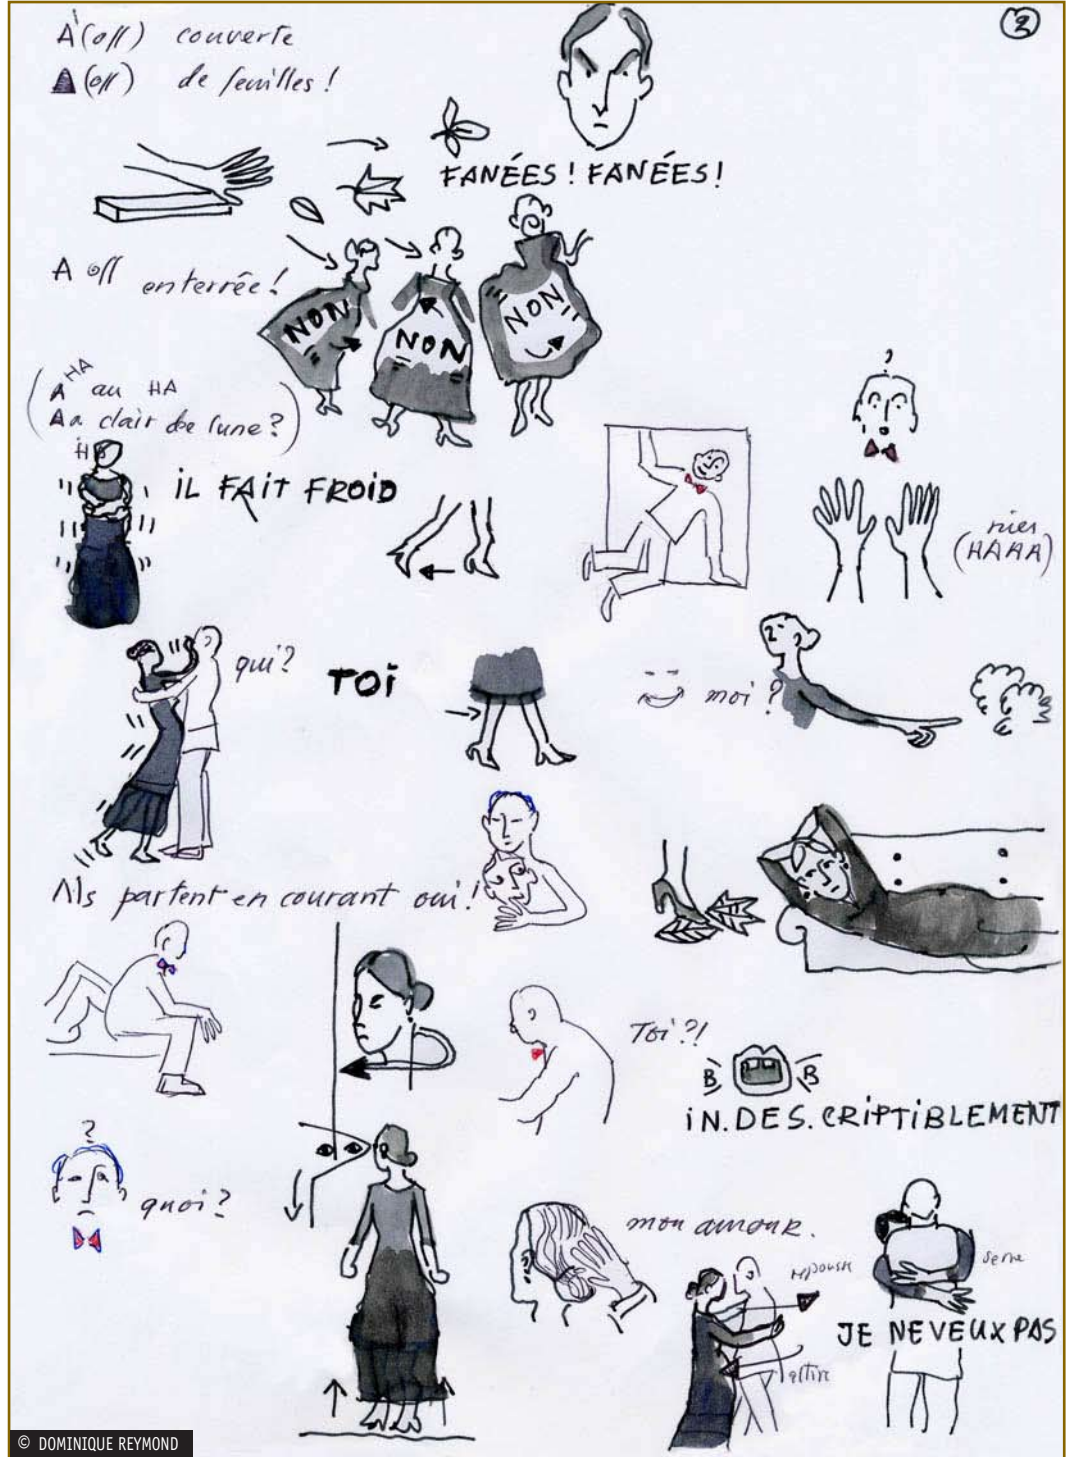 2
A (off) couverte
A (off) de feuilles !
FANÉES ! FANÉES !
A off enterrée !
NON
NON
NON
(A HA au HA
A a clair de lune ?)
iL FAiT FROiD
?
rires
(HAAA)
qui ?
TOi
moi ?
Ils partent en courant oui !
Toi ?!
B B
iN. DES. CRiPTiBLEMENT
?
quoi ?
mon amour.
repousse
serre
JE NE VEUX PAS
attire
© DOMINIQUE REYMOND